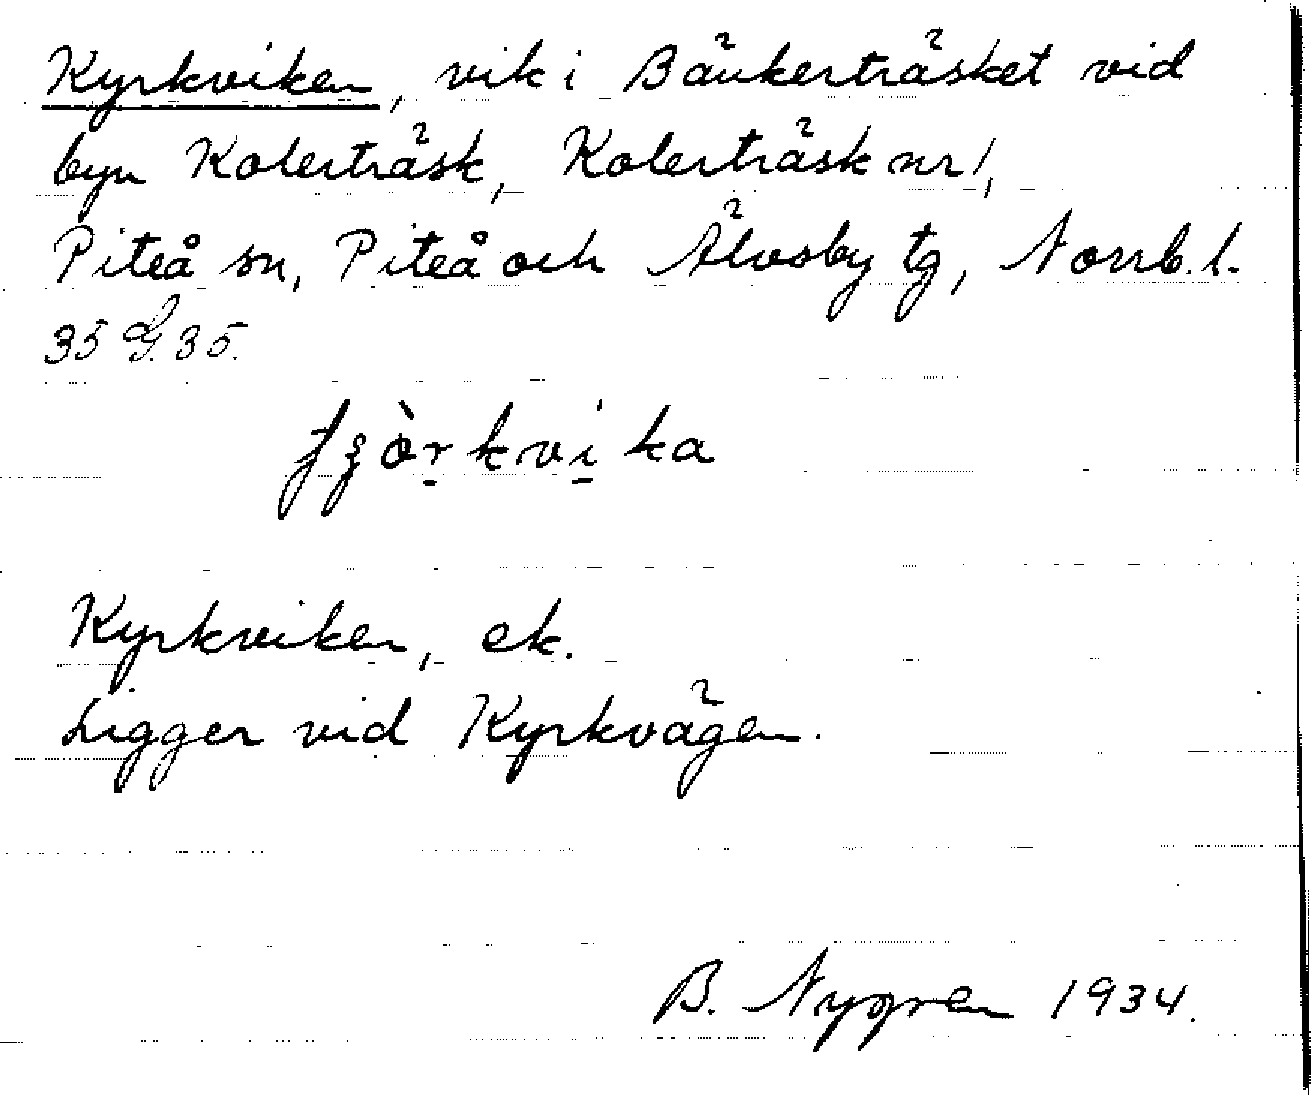 Kyrkviken, vik i Bänkerträsket vid
byn Kolerträsk, Kolerträsk nr 1,
Piteå sn, Piteå och Älvsby tg, Norrb. l.
35 35.
kvika
Kyrkviken, ek.
Ligger vid Kyrkvägen.
B. Nygren 1934.